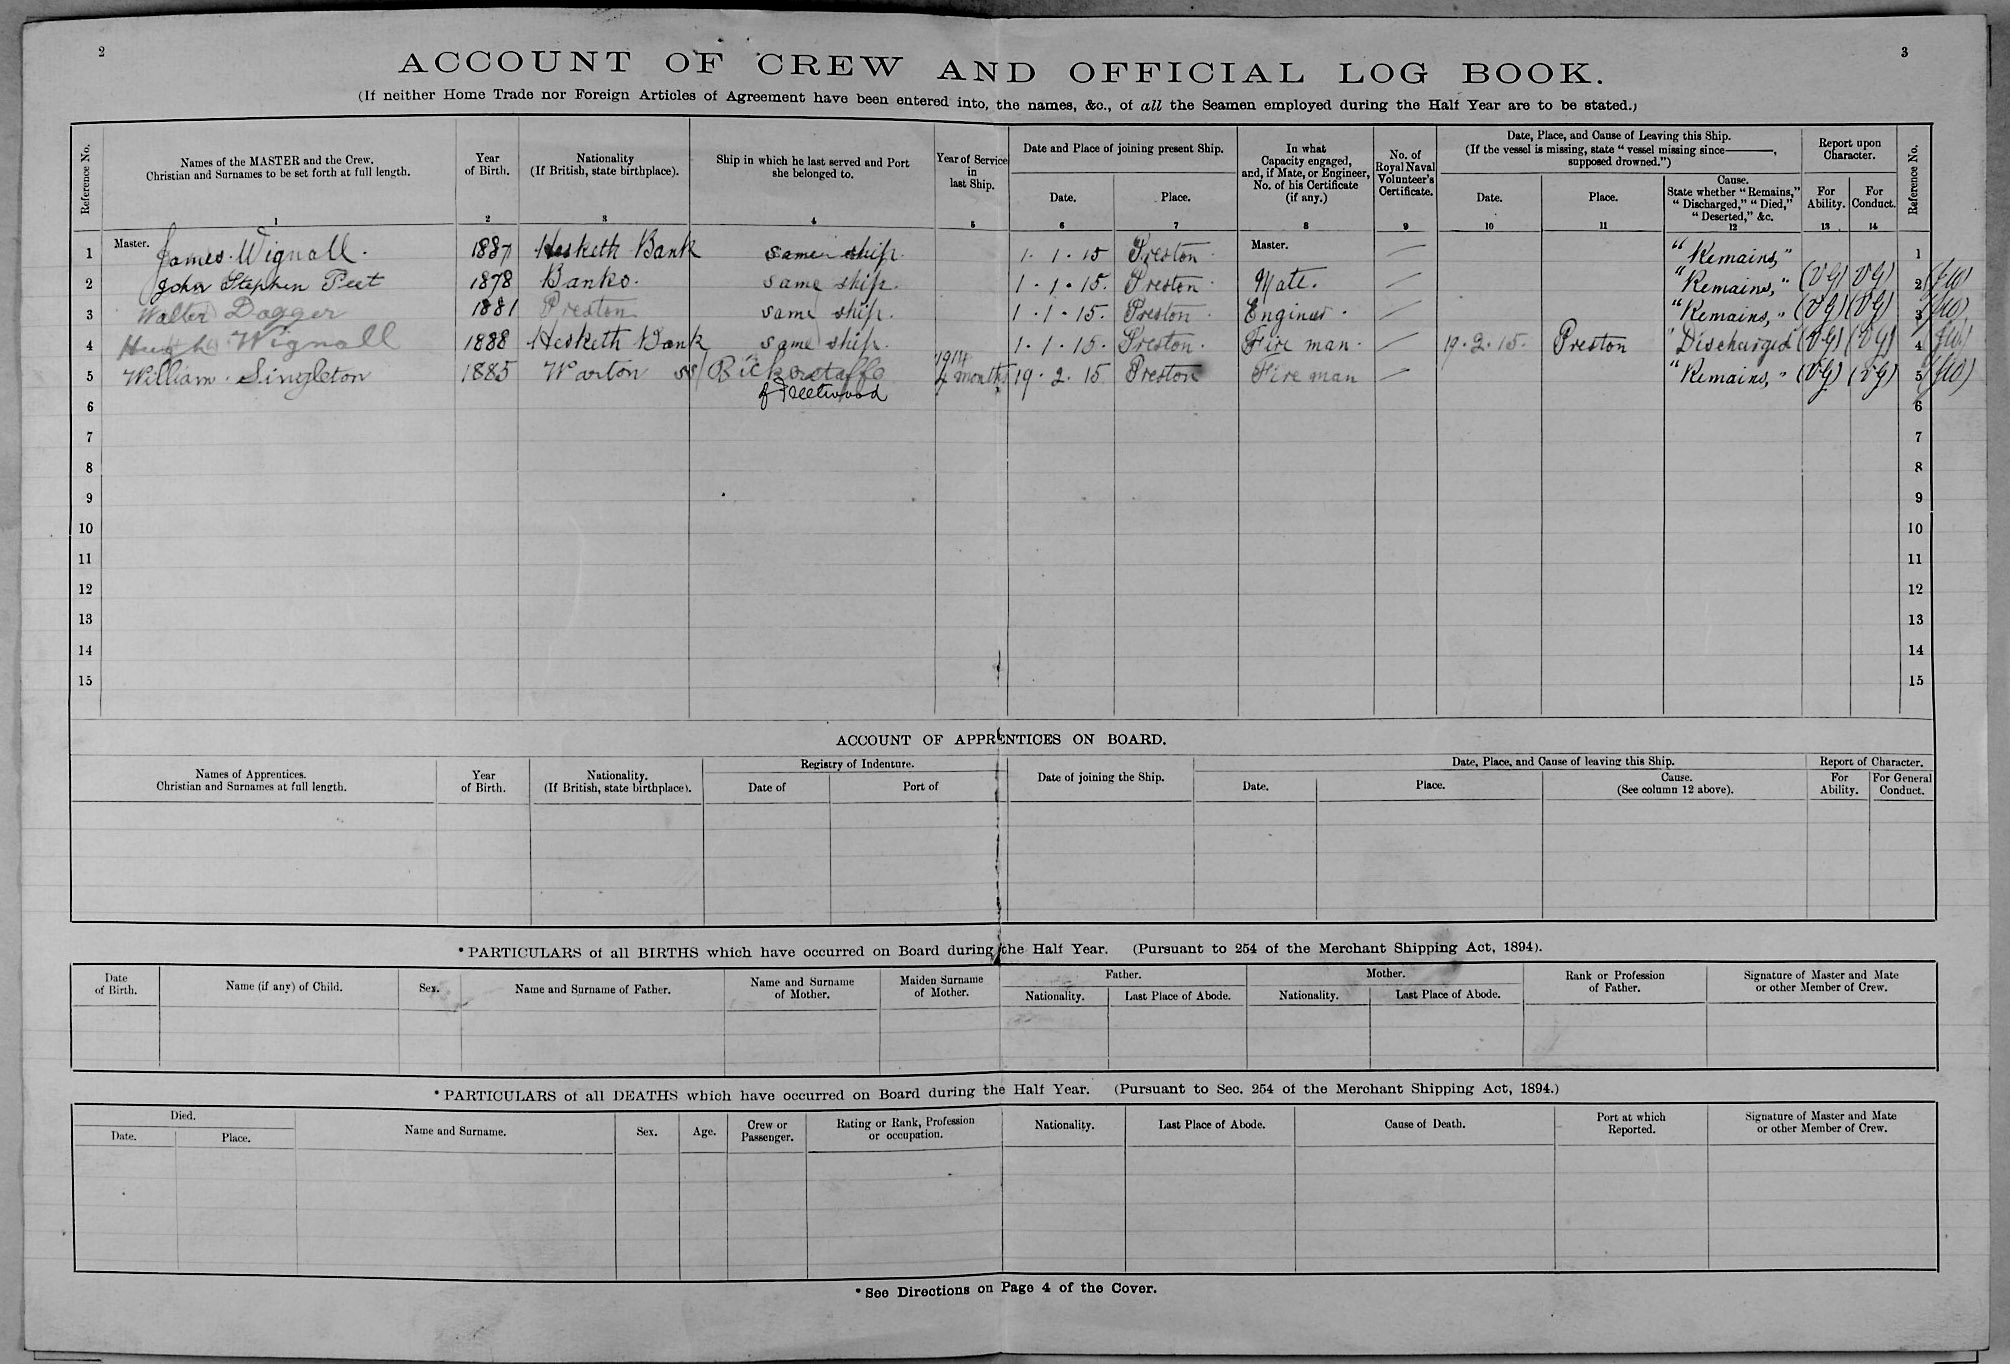 2
3
ACCOUNT OF CREW AND OFFICIAL LOG BOOK.
(If neither Home Trade nor Foreign Articles of Agreement have been entered into, the names, &c., of all the Seamen employed during the Half Year are to be stated.)
Reference No.
Names of the MASTER and the Crew. Christian and Surnames to be set forth at full length. 1
Year of Birth. 2
Nationality (If British, state birthplace). 3
Ship in which he last served and Port she belonged to. 4
Year of Service in last Ship. 5
Date and Place of joining present Ship.
Date. 6
Place. 7
In what Capacity engaged, and, if Mate, or Engineer, No. of his Certificate (if any.) 8
No. of Royal Naval Volunteer's Certificate. 9
Date, Place, and Cause of Leaving this Ship. (If the vessel is missing, state "vessel missing since———, supposed drowned.")
Date. 10
Place. 11
Cause. State whether "Remains," "Discharged," "Died," "Deserted," &c. 12
Report upon Character.
For Ability. 13
For Conduct. 14
Reference No.
1 Master. James Wignall. 1887 Hesketh Bank same ship. 1.1.15 Preston Master. "Remains," 1
2 John Stephen Peet 1878 Banks. same ship. 1.1.15. Preston. Mate. "Remains," (VG) VG) 2
3 Walter Dagger 1881 Preston same ship. 1.1.15. Preston. Engineer. "Remains," (VG) (VG) 3
4 Hugh Wignall 1888 Hesketh Bank same ship. 1.1.15. Preston. Fire man. 19.2.15. Preston "Discharged (VG) (VG) 4
5 William Singleton 1885 Warton SS Bickerstaffe 1914 4 months 19.2.15 Preston Fire man "Remains," (VG) (VG) 5
6 of Fleetwood 6
7 7
8 8
9 9
10 10
11 11
12 12
13 13
14 14
15 15
ACCOUNT OF APPRENTICES ON BOARD.
Names of Apprentices. Christian and Surnames at full length.
Year of Birth.
Nationality. (If British, state birthplace).
Registry of Indenture.
Date of
Port of
Date of joining the Ship.
Date, Place, and Cause of leaving this Ship.
Date.
Place.
Cause. (See column 12 above).
Report of Character.
For Ability.
For General Conduct.
*PARTICULARS of all BIRTHS which have occurred on Board during the Half Year. (Pursuant to 254 of the Merchant Shipping Act, 1894).
Date of Birth.
Name (if any) of Child.
Sex.
Name and Surname of Father.
Name and Surname of Mother.
Maiden Surname of Mother.
Father.
Nationality.
Last Place of Abode.
Mother.
Nationality.
Last Place of Abode.
Rank or Profession of Father.
Signature of Master and Mate or other Member of Crew.
*PARTICULARS of all DEATHS which have occurred on Board during the Half Year. (Pursuant to Sec. 254 of the Merchant Shipping Act, 1894.)
Died.
Date.
Place.
Name and Surname.
Sex.
Age.
Crew or Passenger.
Rating or Rank, Profession or occupation.
Nationality.
Last Place of Abode.
Cause of Death.
Port at which Reported.
Signature of Master and Mate or other Member of Crew.
*See Directions on Page 4 of the Cover.